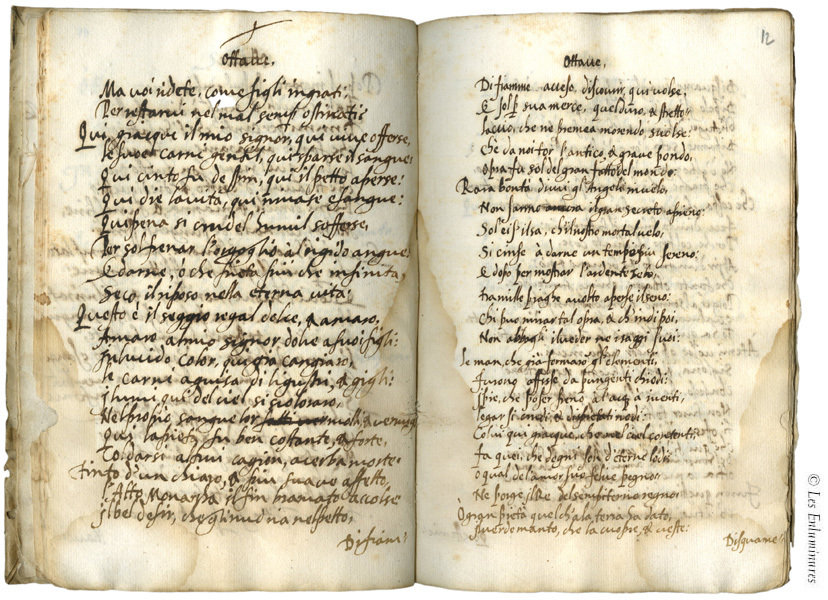 Ottaue.
Ma voi ridete, come figli ingrati;
Per restarui nel mal sempre ostinati;
Qui, giacque il mio signor, qui uiue offerse,
le sue carni genti, qui sparse il sangue
Qui cinto fu de spin, qui il petto aperse:
Qui diè la uita, qui rimase esangue:
Qui pena si crudel humil sofferse,
Per sol frenar l'orgoglio al rigido angue
E darne, o che pietà più che infinita,
Seco, il riposo nella eterna uita:
Questo è il seggio regal dolce, & amaro,
Amaro al mio signor dolce a suoi figli:
In liuido color, qui già cangiaro,
le carni a guisa di ligustri, & gigli:
i lumi, qui del ciel si scoloraro,
Nel proprio sangue lor
Qui la pietà fu ben costante, & forte,
Tol darsi a sui cagion, acerba morte.
Tinto d'un chiaro, & più suaue affetto,
l'Alto Monarca il fin bramato accolse
il bel desir, che gli nudria nel petto,
Di fiam
12
Ottaue,
Di fiamme acceso, discourir, qui uolse:
E sol per sua mercè, quel duro, & stretto
laccio, che ne premea morendo, sciolse:
Che da noi tor l'antico, & graue pondo,
Opra fu sol del gran fattor del mondo:
Rara bontà diuin gl'Angeli in uelo,
Non sanno ancora il gran secreto a pieno:
Sol ei si sa, ch'il nostro mortal uelo,
Si cinse à darne un tempo più sereno:
E dopo per mostrar l'ardente zelo,
tra mille piaghe auolto aperse il seno:
Chi può mirar tal opra, & chi di poi,
Non abbagli il ueder ne raggi suoi:
le man, che già formaro gl'elementi
furono affisse da pungenti chiodi:
i piè, che poser freno a l'acqua, i uenti,
legar si crudi, & dispietati modi:
Colui qui giacque, che nel ciel contenti,
fa quei, che degni son d'eterne lodi:
o qual de l'amor suo felice pegno:
Ne porge, il Re del sempiterno regno:
O gran pietà quel ch'a la terra ha dato,
il uerde manto, che la cuopre, & ueste:
Di squame
© Les Enluminures